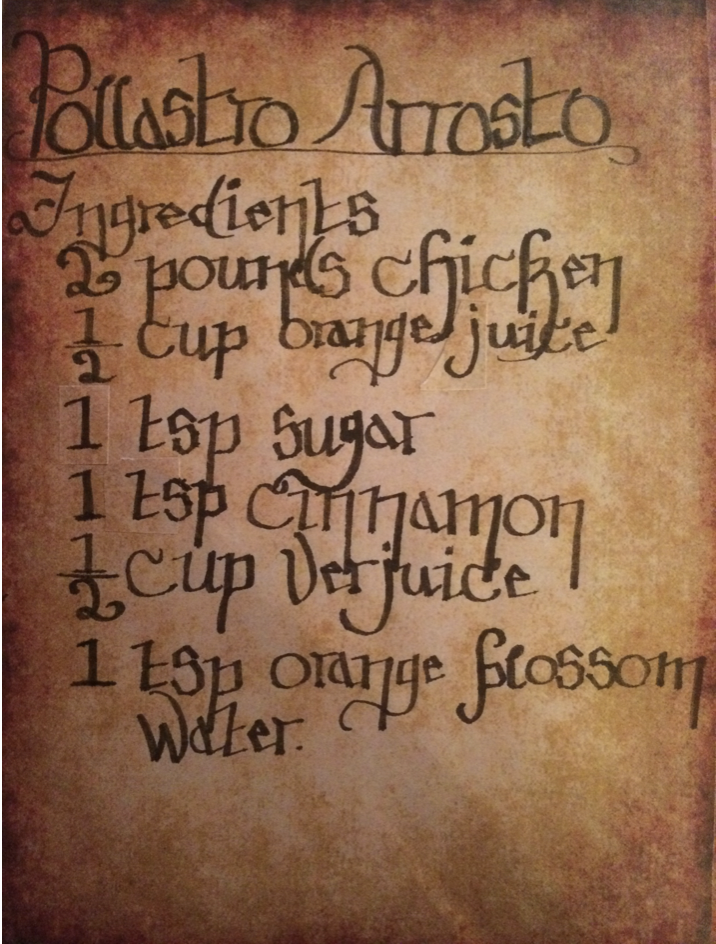 Pollastro Arrosto
Ingredients
2 pounds chicken
1/2 cup orange juice
1 tsp sugar
1 tsp Cinnamon
1/2 cup Verjuice
1 tsp orange blossom
Water.